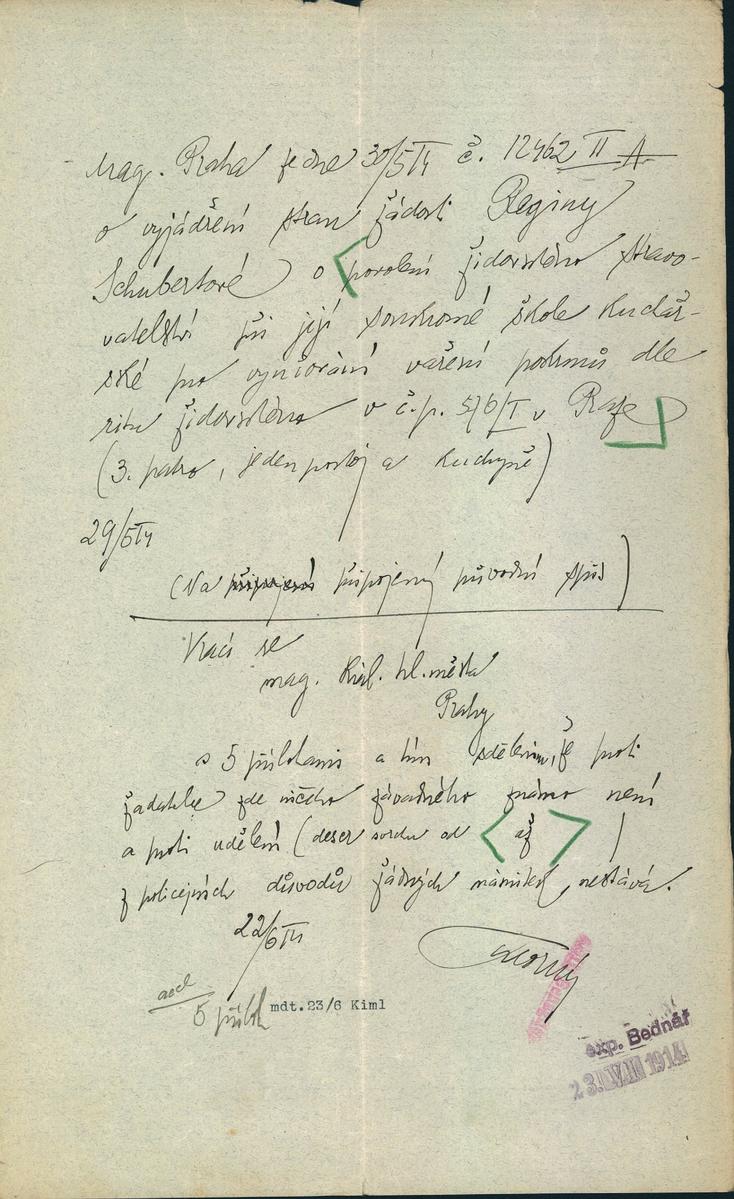 Mag. Praha ze dne 30/5 14 č. 12462 II A
o vyjádření stran žádosti Reginy
Schubertové o povolení židovského stravo-
vatelství při její soukromé škole kuchař-
ské pro vyučování vaření pokrmů dle
ritu židovského v č.p. 576/I v Praze
(3. patro, jeden pokoj a kuchyně)
29/5 14
(Na připojený původní spis)
Vrací se
mag. král. hl. města
Prahy
s 5 přílohami a tím sdělením, že proti
žadatelce zde ničeho závadného známo není
a proti udělení (deser od < až > )
z policejních důvodů žádných námitek nestává.
22/6 14
5 příloh
mdt.23/6 Kiml
exp. Bednář
23. 1914